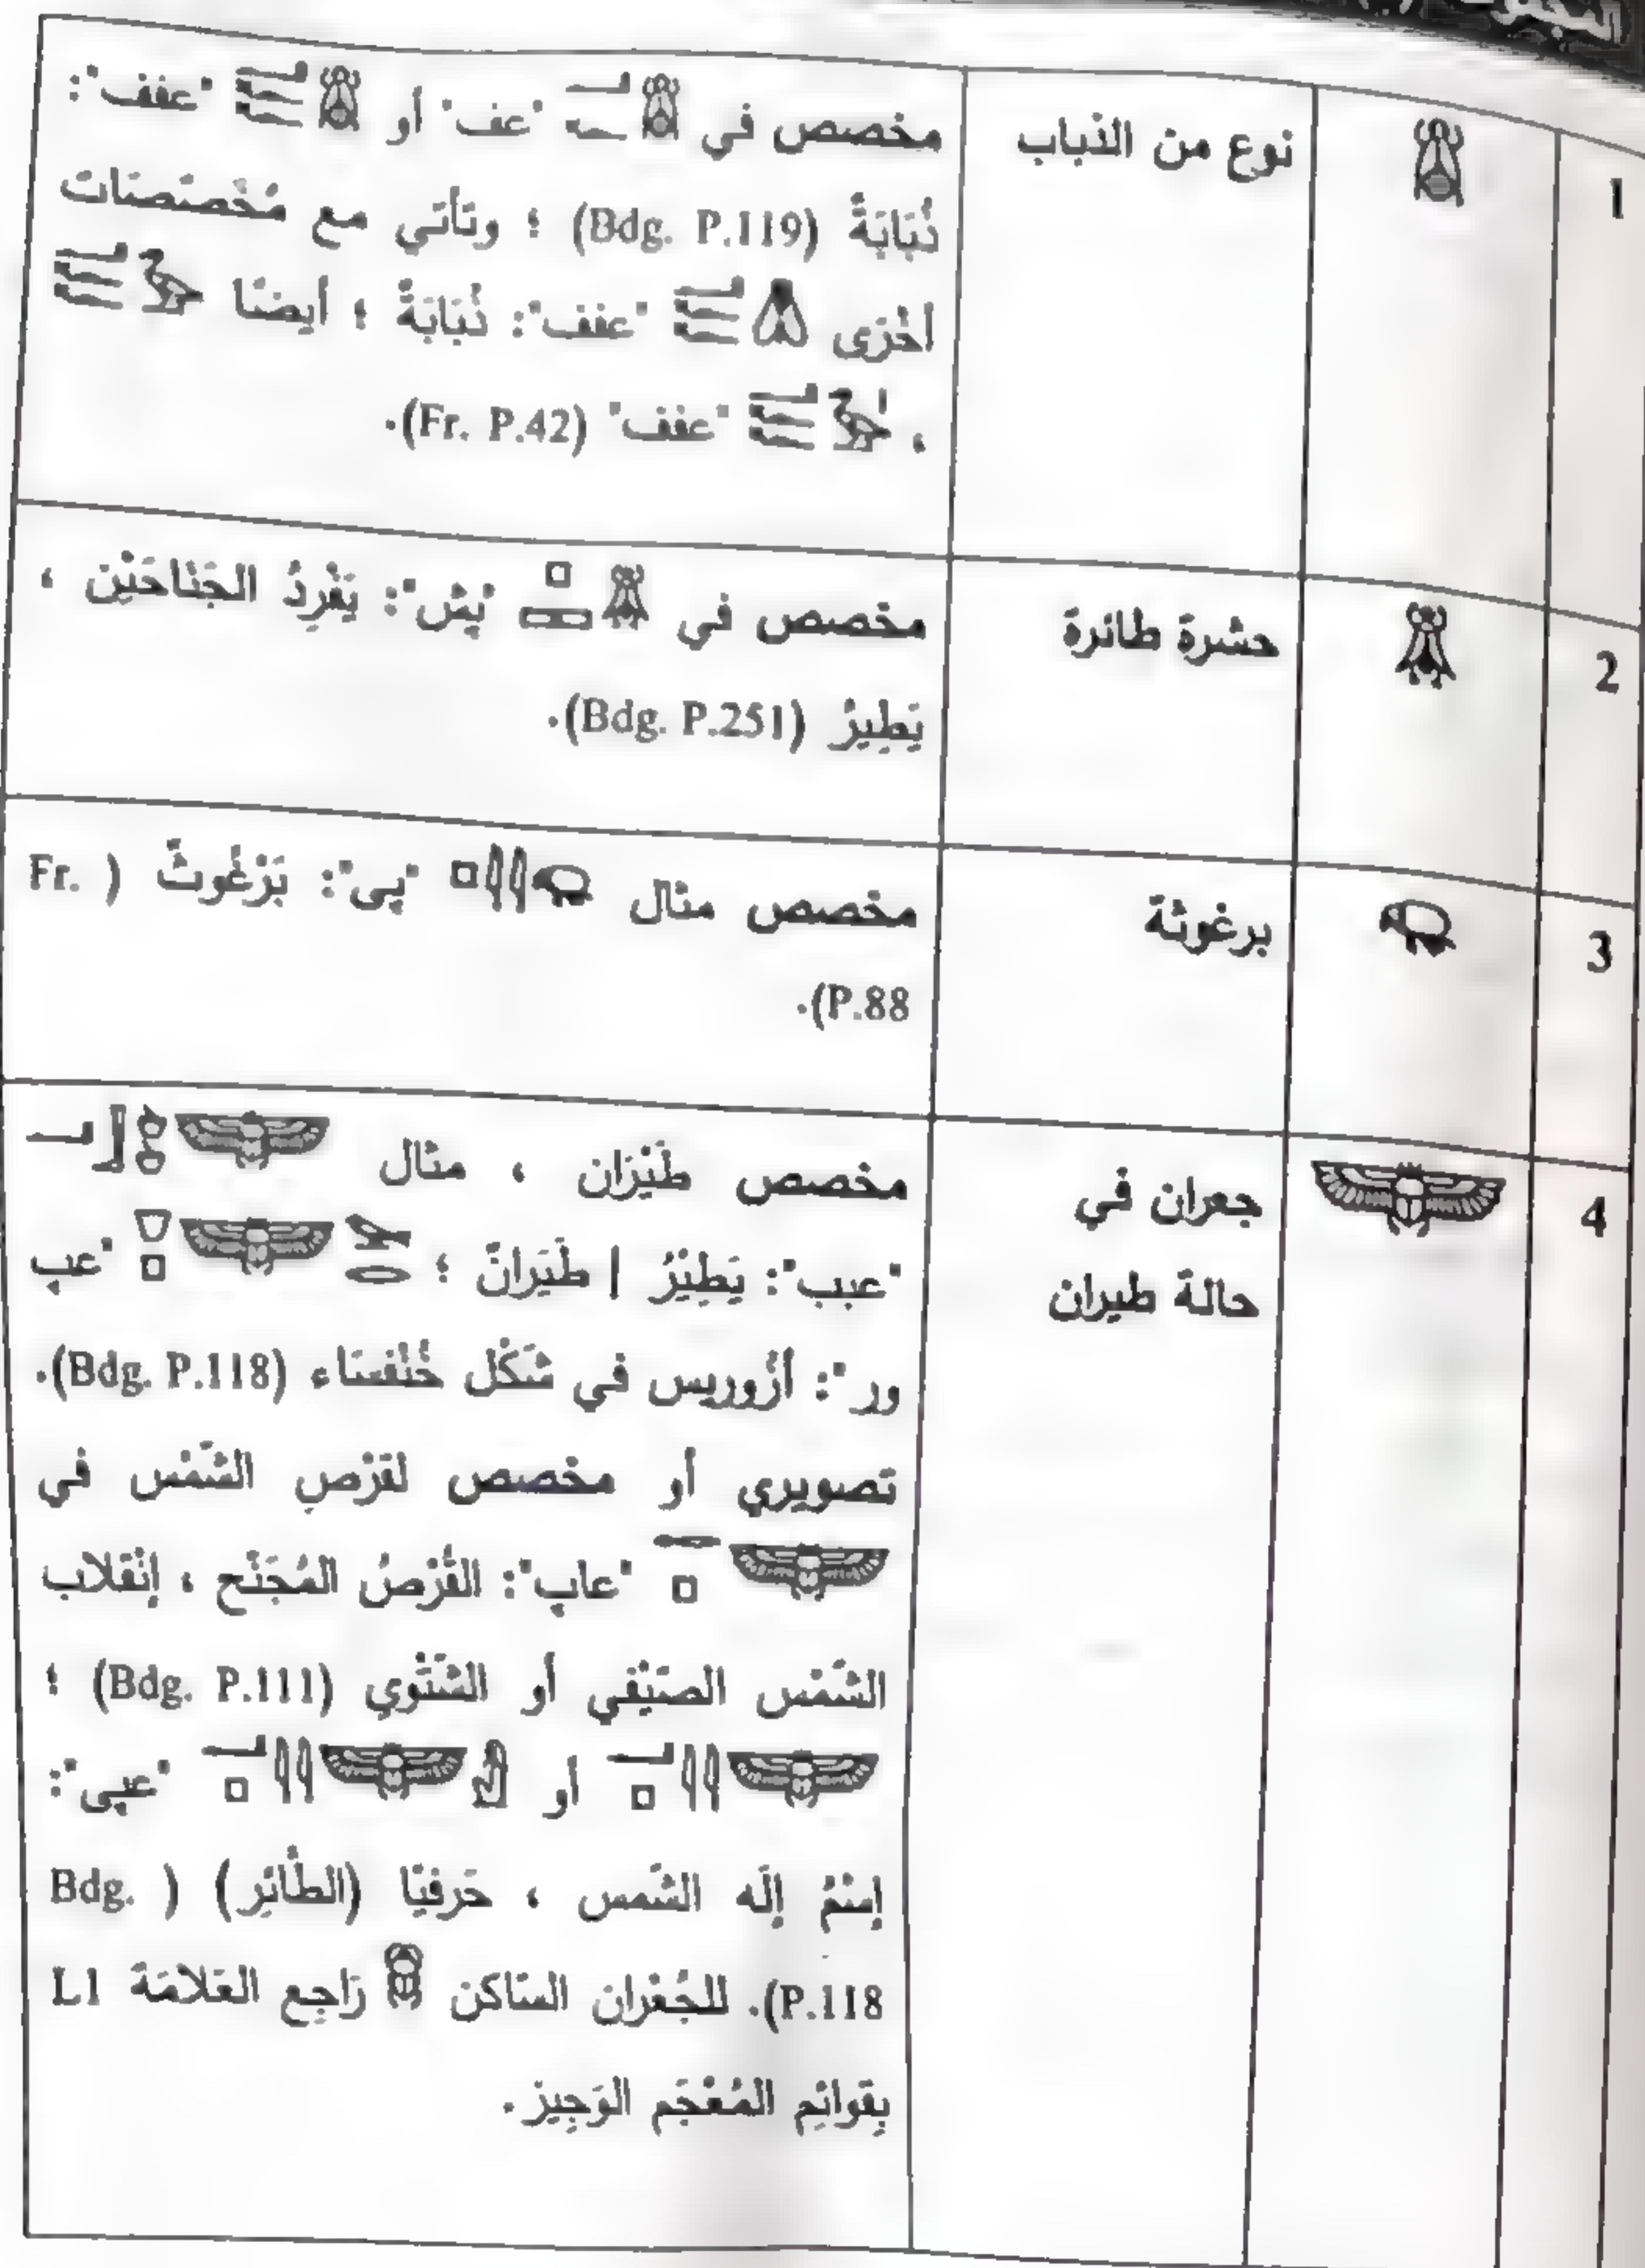 1
نوع من الذباب
مخصص في "عف" أو "عفف":
ذُبَابَةً (Bdg. P.119) ؛ وتَأتي مع مُخَصصَات
أخْرَى "عفف": ذُبَابَةً ؛ أيضًا
، "عفف" (Fr. P.42).
2
حشرة طائرة
مخصص في "پش": يَفْرِدُ الجَنَاحَيْن ،
يَطِيرُ (Bdg. P.251).
3
برغوثة
مخصص مثال "پى": بَرْغُوثٌ ( Fr.
P.88).
4
جعران في
حالة طيران
مخصص طَيْرَان ، مثال
"عبب": يَطِيْرُ | طَيَرانٌ ؛ "عپ
ور": أزُوريس في شَكْل خُنْفسَاء (Bdg. P.118).
تصويري أو مخصص لقرْصِ الشّمْس في
"عاپ": القُرْصُ المُجَنّح ، إنْقلاب
الشّمْس الصَيْفي أو الشّتْوي (Bdg. P.111) ؛
أو "عپى":
إسْمُ إلَه الشّمس ، حَرفيًا (الطَّائِر) ( Bdg.
P.118). للجُعْرَان السّاكن رَاجِع العَلامَة L1
بِقوائِم المُعْجَم الوَجِيز.